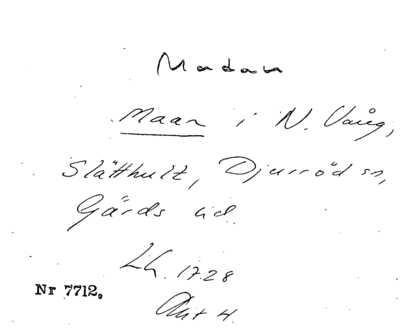 Madan
Maan i N. Vång,
Slätthult, Djurröd sn,
Gärds hd.
Lh. 1728
Akt 4.
Nr 7712.